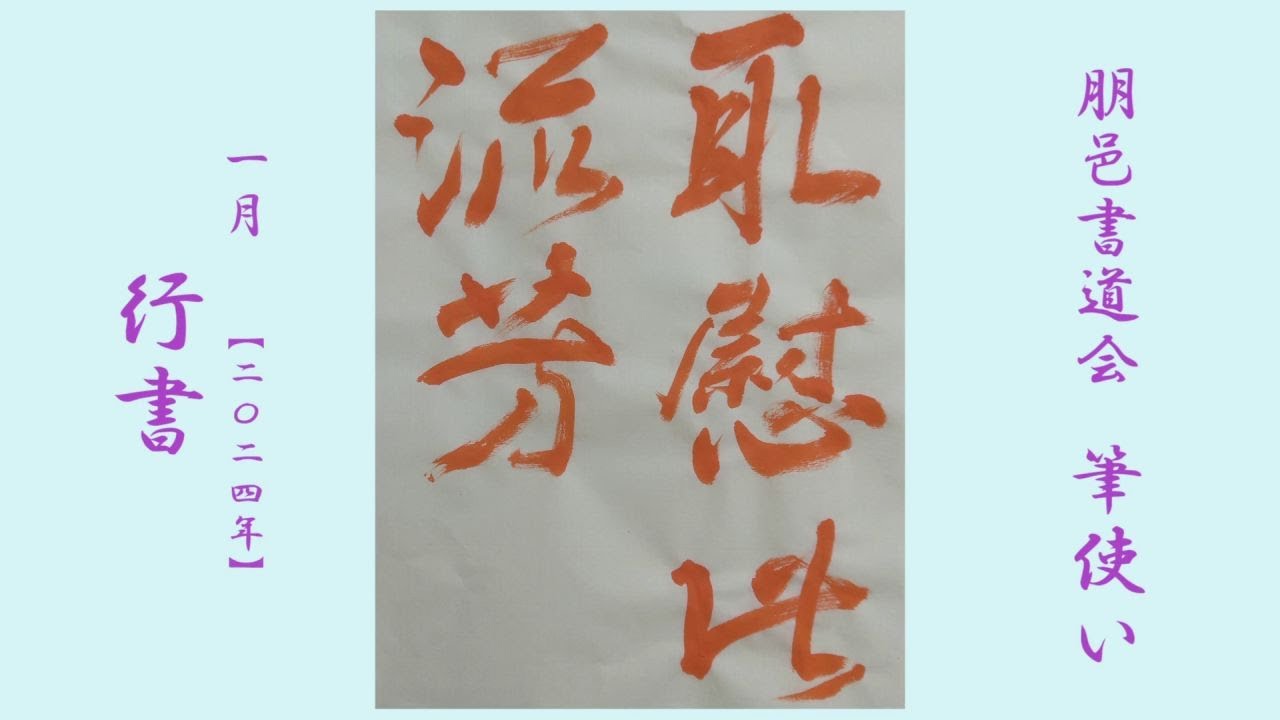 朋邑書道会　筆使い
取慰此
流芳
一月　【二〇二四年】
行書